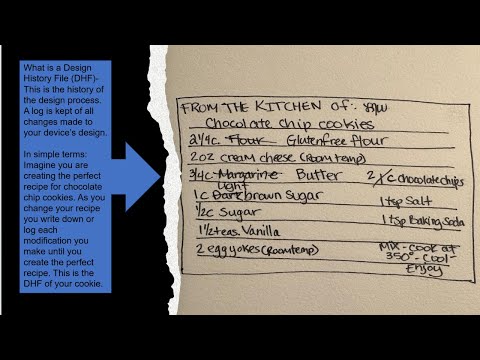 What is a Design
History File (DHF)-
This is the history of
the design process.
A log is kept of all
changes made to
your device's design.
In simple terms:
Imagine you are
creating the perfect
recipe for chocolate
chip cookies. As you
change your recipe
you write down or
log each
modification you
make until you
create the perfect
recipe. This is the
DHF of your cookie.
FROM THE KITCHEN OF:
Chocolate chip cookies
2 1/4 c. Flour Glutenfree flour
2 oz cream cheese (Room temp)
3/4 c Margarine Butter
2 c chocolate chips
1 c Dark Light brown Sugar
1 tsp Salt
1/2 c Sugar
1 tsp Baking Soda
1 1/2 teas. Vanilla
2 egg yokes (Room temp)
Mix - Cook at
350° - Cool -
Enjoy